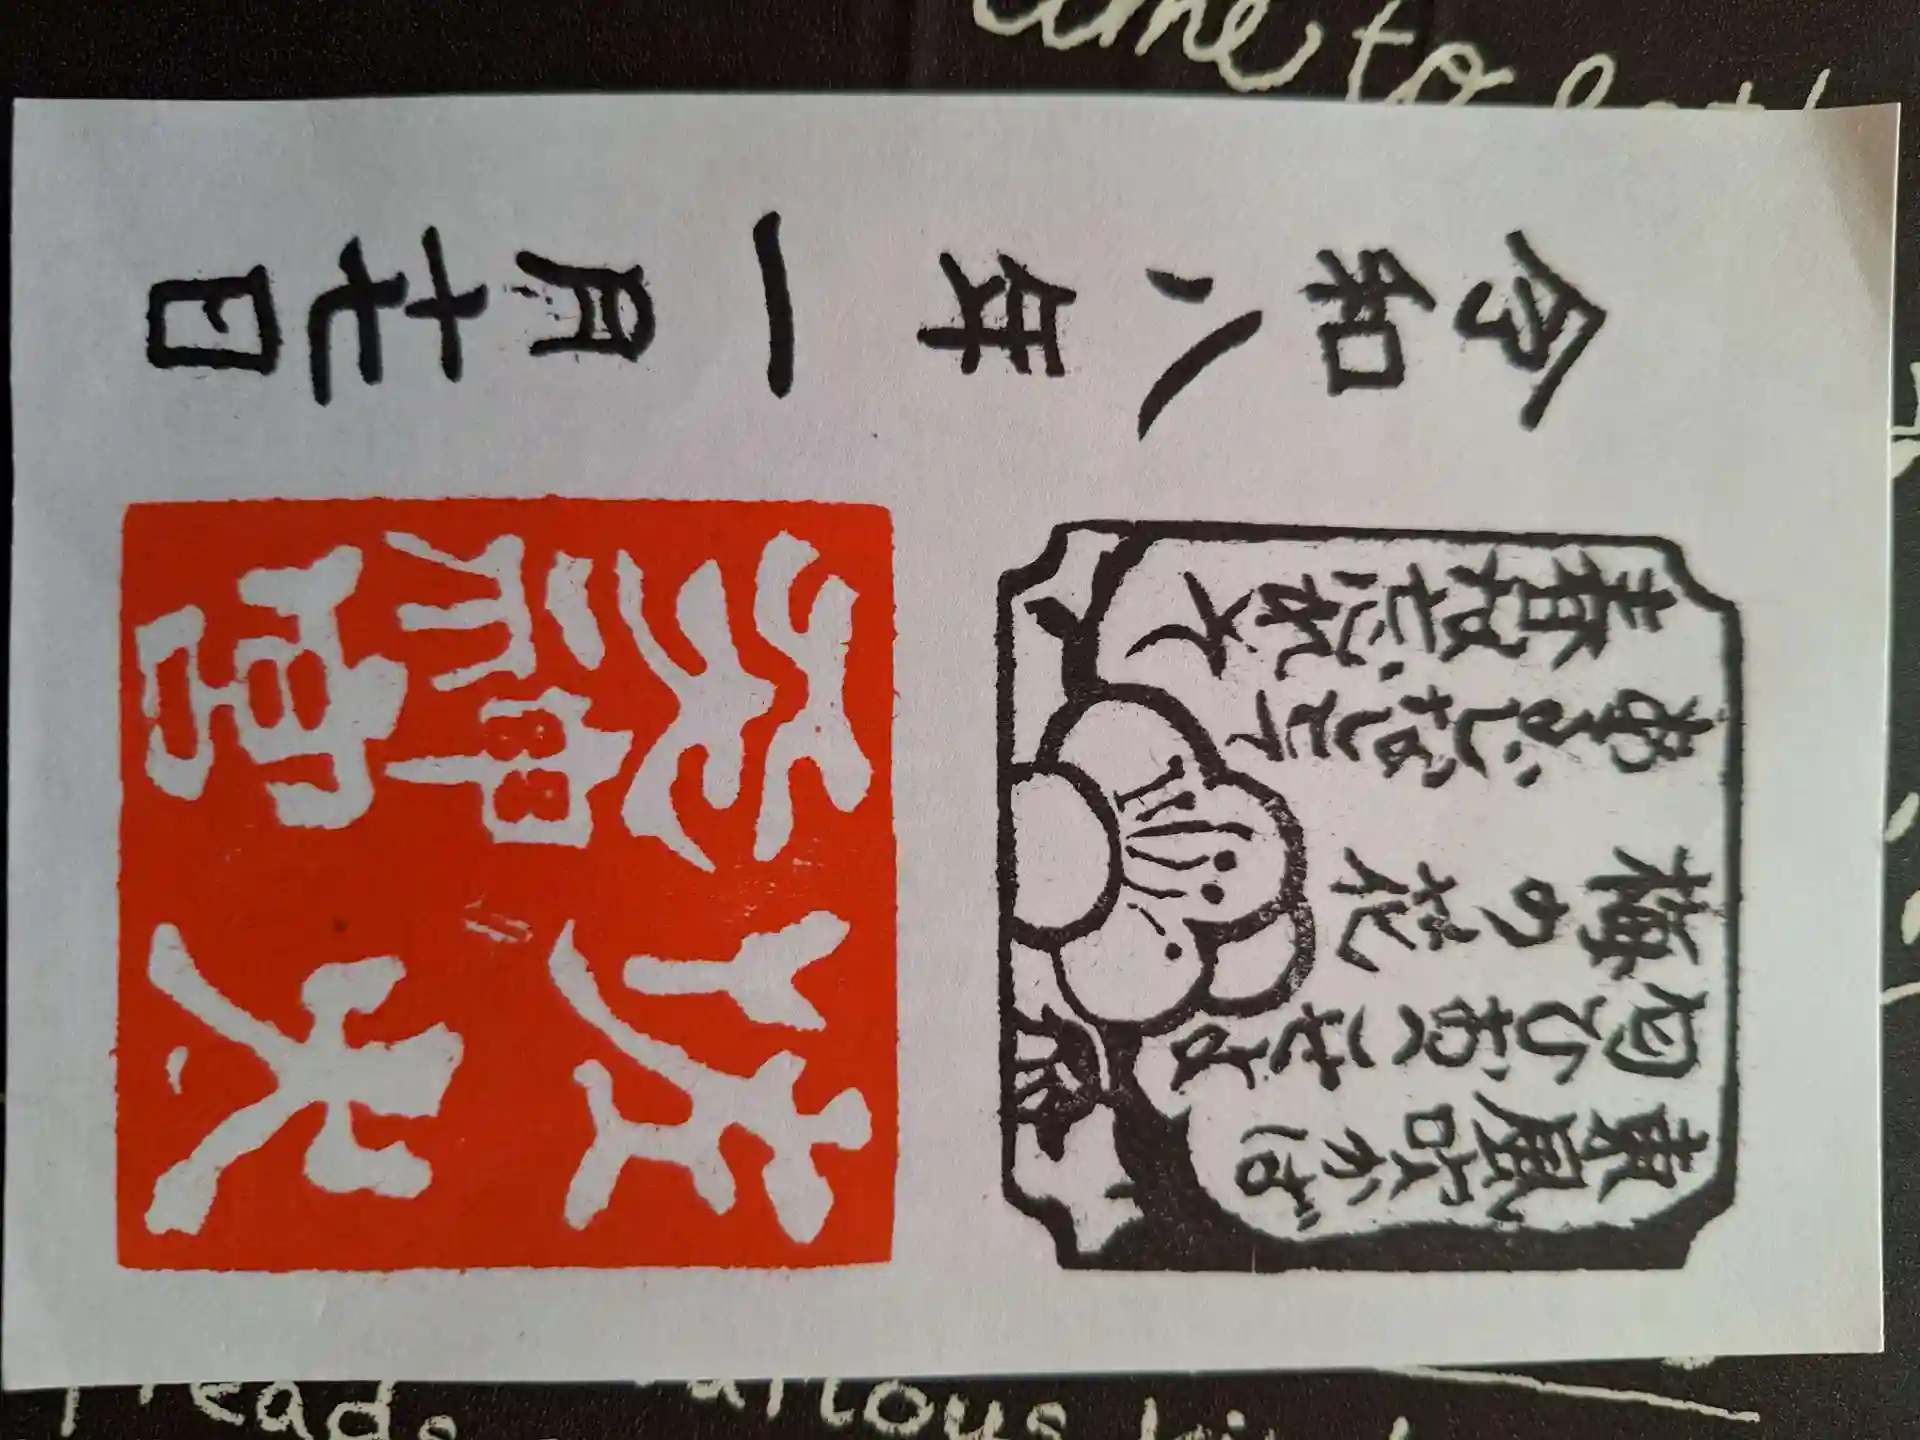 time to
令和八年一月十七日
東風吹かば
匂ひおこせよ
梅の花
あるじなしとて
春な忘れそ
神宮